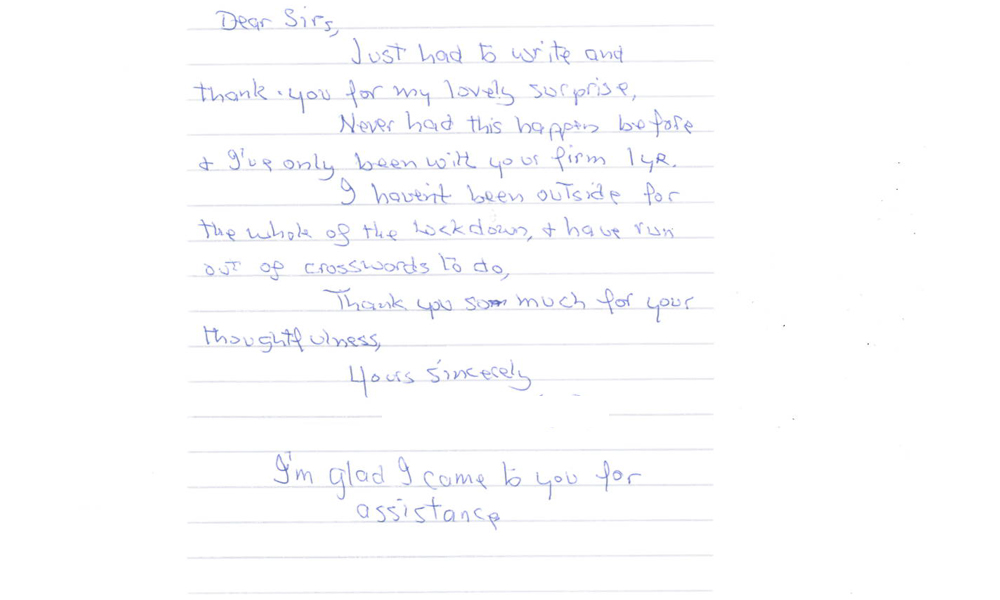 Dear Sirs,
Just had to write and
thank you for my lovely surprise,
Never had this happen before
& I've only been with your firm 1yR.
I haven't been outside for
the whole of the lockdown, & have run
out of crosswords to do,
Thank you so much for your
thoughtfulness,
Yours Sincerely
I'm glad I came to you for
assistance